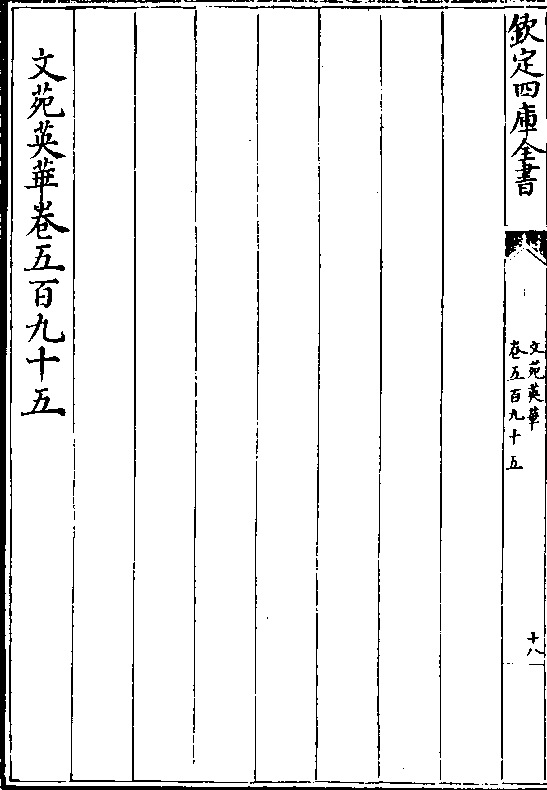 欽定四庫全書
文苑英華
卷五百九十五
十八
文苑英華卷五百九十五